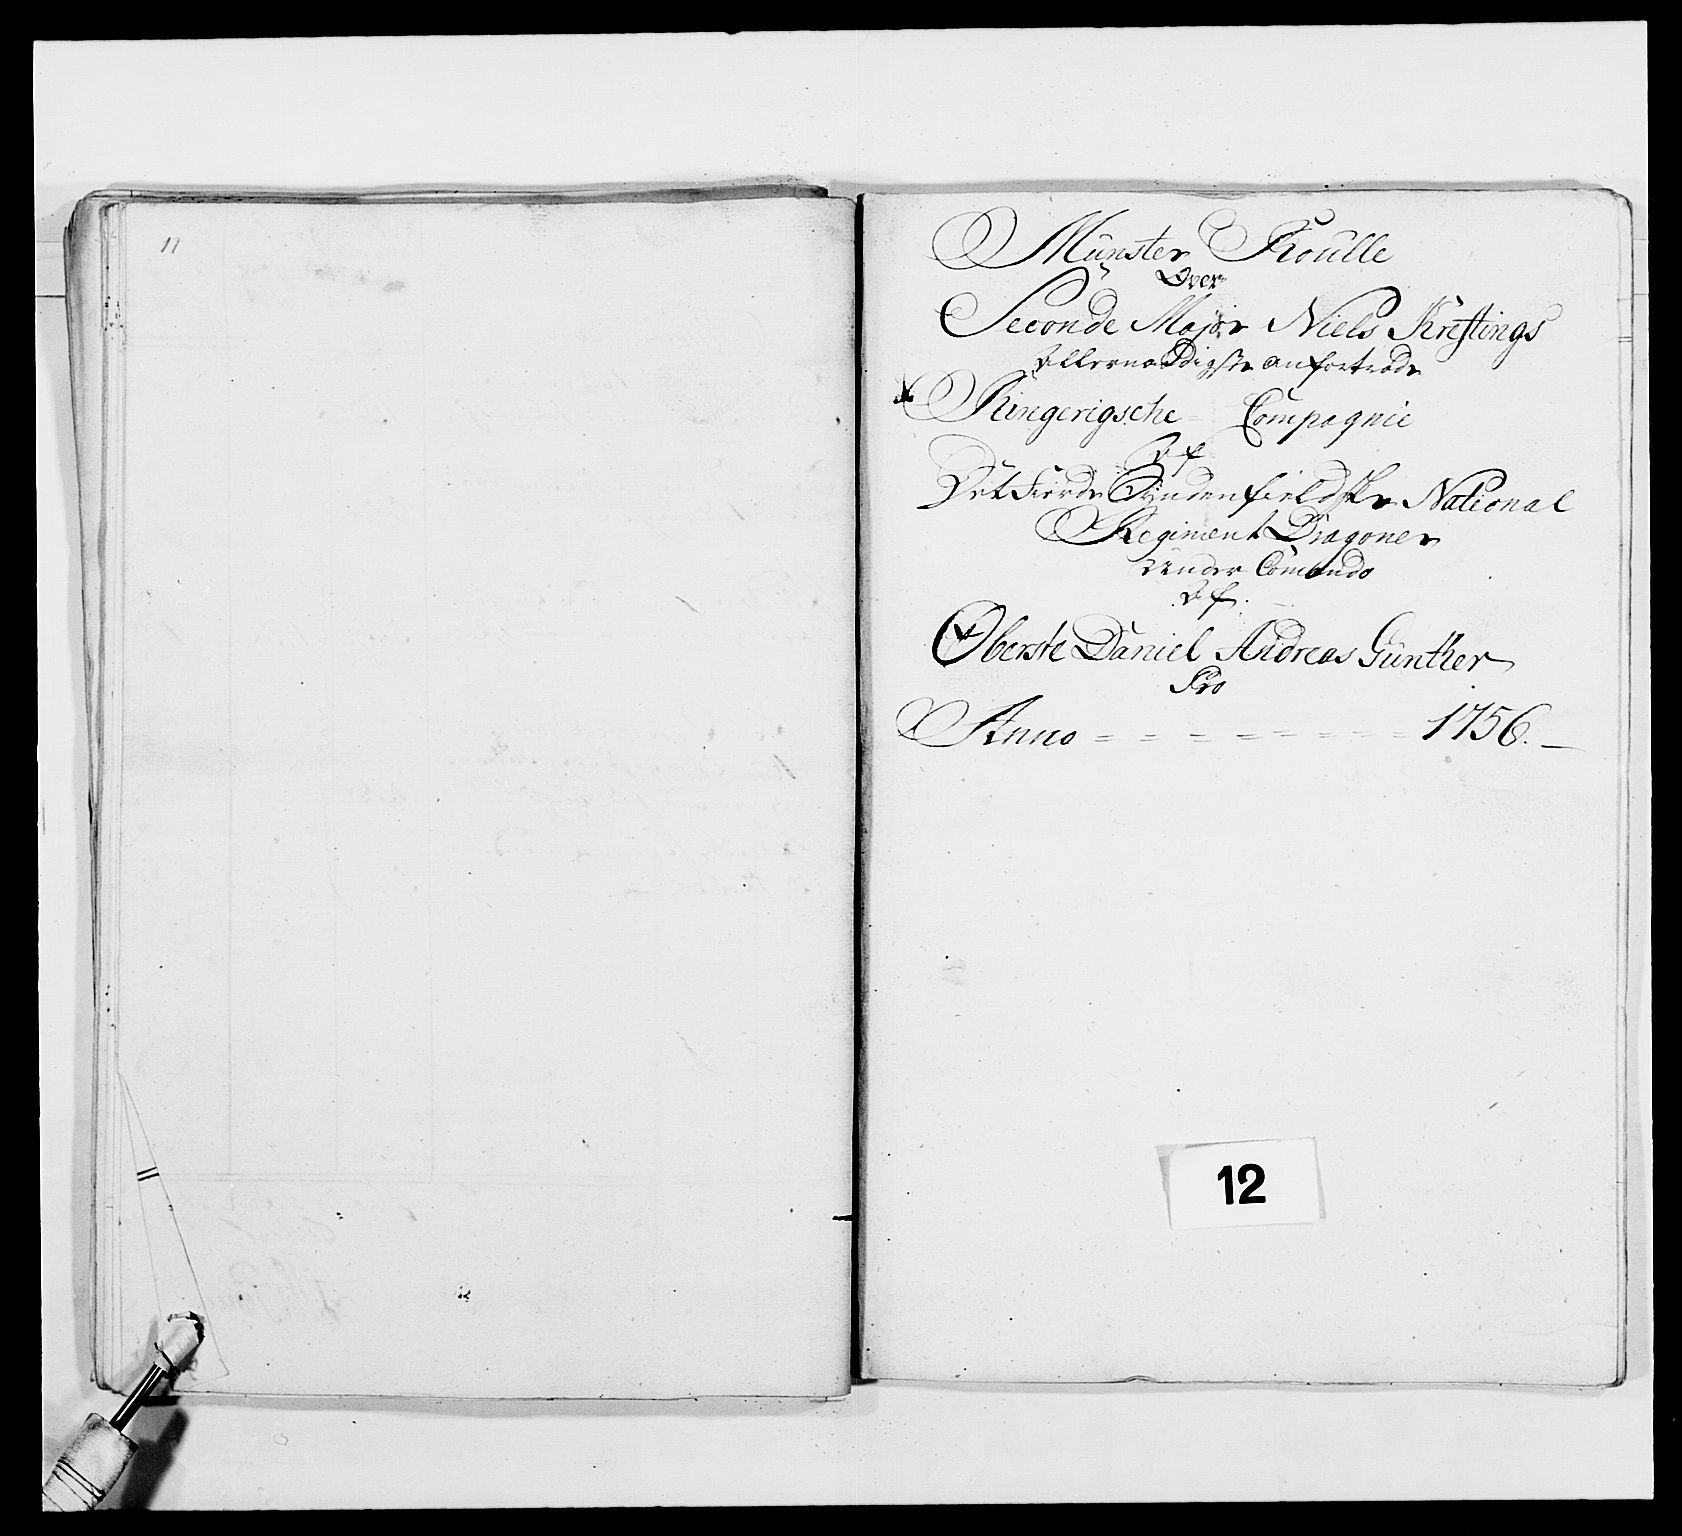 11
Münster Roulle
Over
Seconde Major Niels Krestings
Allernaadigste anfortrode
Ringerigsche Compagnie
Af
Det Fierde Syndenfieldske National
Regiment Dragoner
Under Comando
Af
Oberste Daniel Andreas Günther
Pro
Anno = = = = = = = 1756. –
12